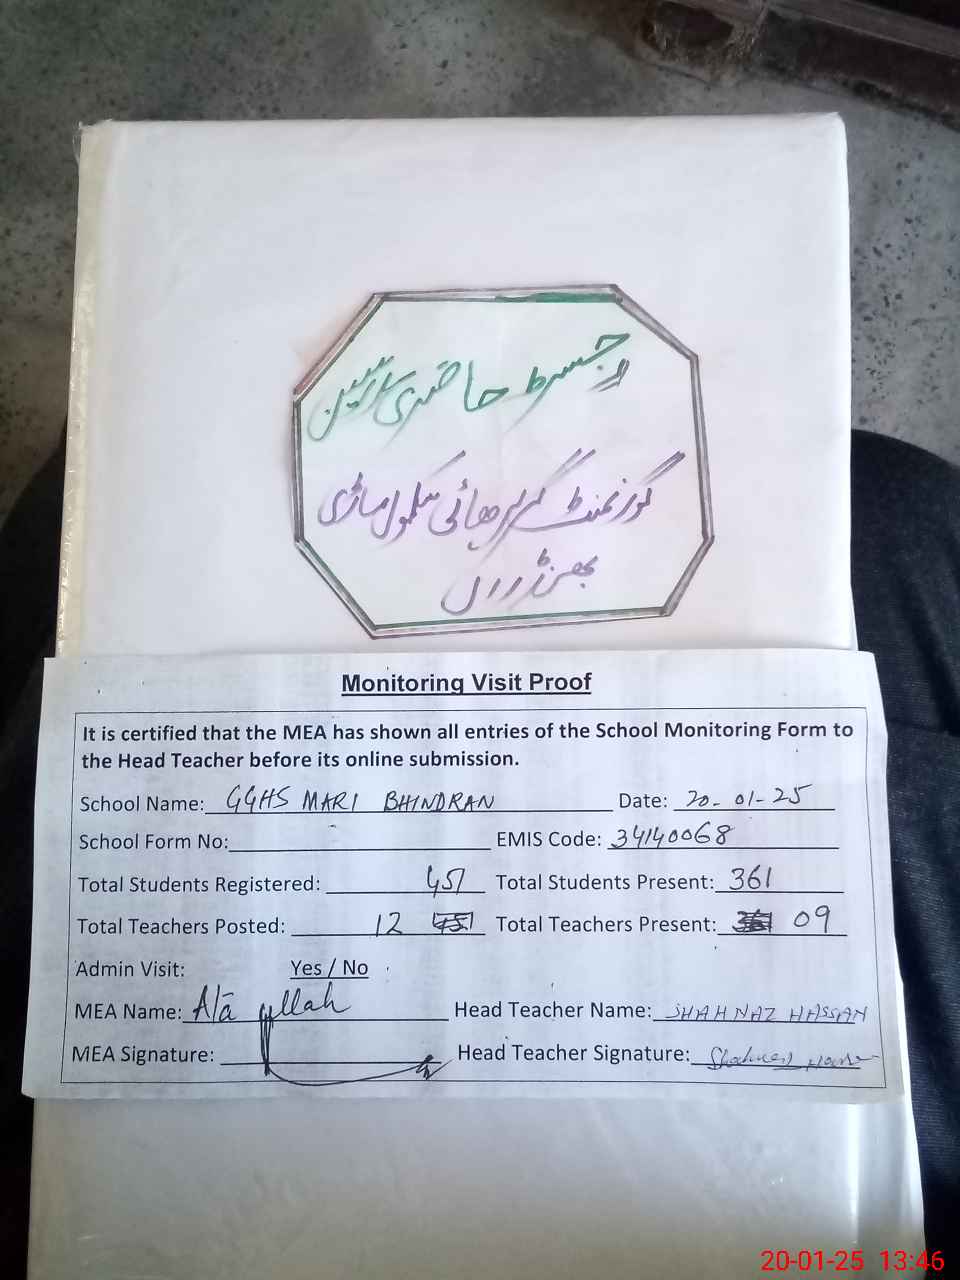 رجسٹر حاضری معلمین
گورنمنٹ گرلز ہائی سکول ماڑی
بھنڈراں
Monitoring Visit Proof
It is certified that the MEA has shown all entries of the School Monitoring Form to
the Head Teacher before its online submission.
School Name: GGHS MARI BHINDRAN Date: 20-01-25
School Form No: EMIS Code: 34140068
Total Students Registered: 451 Total Students Present: 361
Total Teachers Posted: 12 Total Teachers Present: 09
Admin Visit: Yes / No
MEA Name: Ata ullah Head Teacher Name: SHAHNAZ HASSAN
MEA Signature: Head Teacher Signature:
20-01-25 13:46